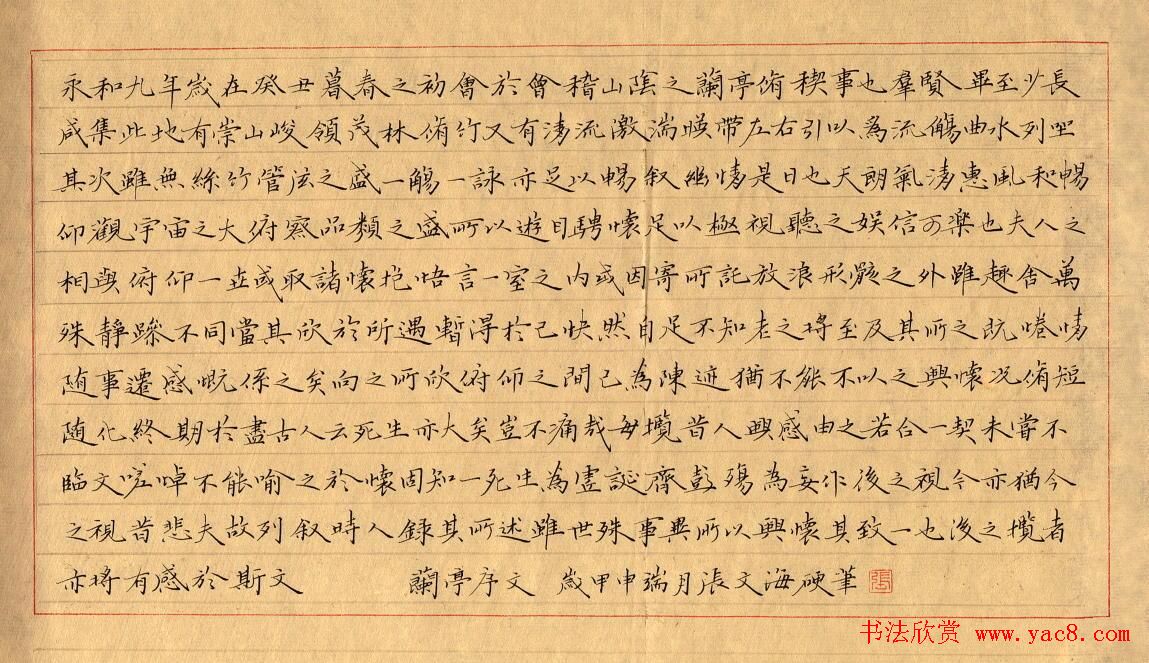 永和九年歲在癸丑暮春之初會於會稽山陰之蘭亭脩稧事也羣賢畢至少長
咸集此地有崇山峻領茂林脩竹又有清流激湍暎帶左右引以為流觴曲水列坐
其次雖無絲竹管弦之盛一觴一詠亦足以暢叙幽情是日也天朗氣清惠風和暢
仰觀宇宙之大俯察品類之盛所以遊目騁懷足以極視聽之娛信可樂也夫人之
相與俯仰一世或取諸懷抱悟言一室之內或因寄所託放浪形骸之外雖趣舍萬
殊靜躁不同當其欣於所遇暫得於己怏然自足不知老之將至及其所之既惓情
随事遷感慨係之矣向之所欣俯仰之間已為陳迹猶不能不以之興懷況脩短
隨化終期於盡古人云死生亦大矣豈不痛哉每攬昔人興感由之若合一契未嘗不
臨文嗟悼不能喻之於懷固知一死生為虛誕齊彭殤為妄作後之視今亦猶今
之視昔悲夫故列叙時人錄其所述雖世殊事異所以興懷其致一也後之攬者
亦將有感於斯文 蘭亭序文 歲甲申端月張文海硬筆 張
书法欣赏 www.yac8.com